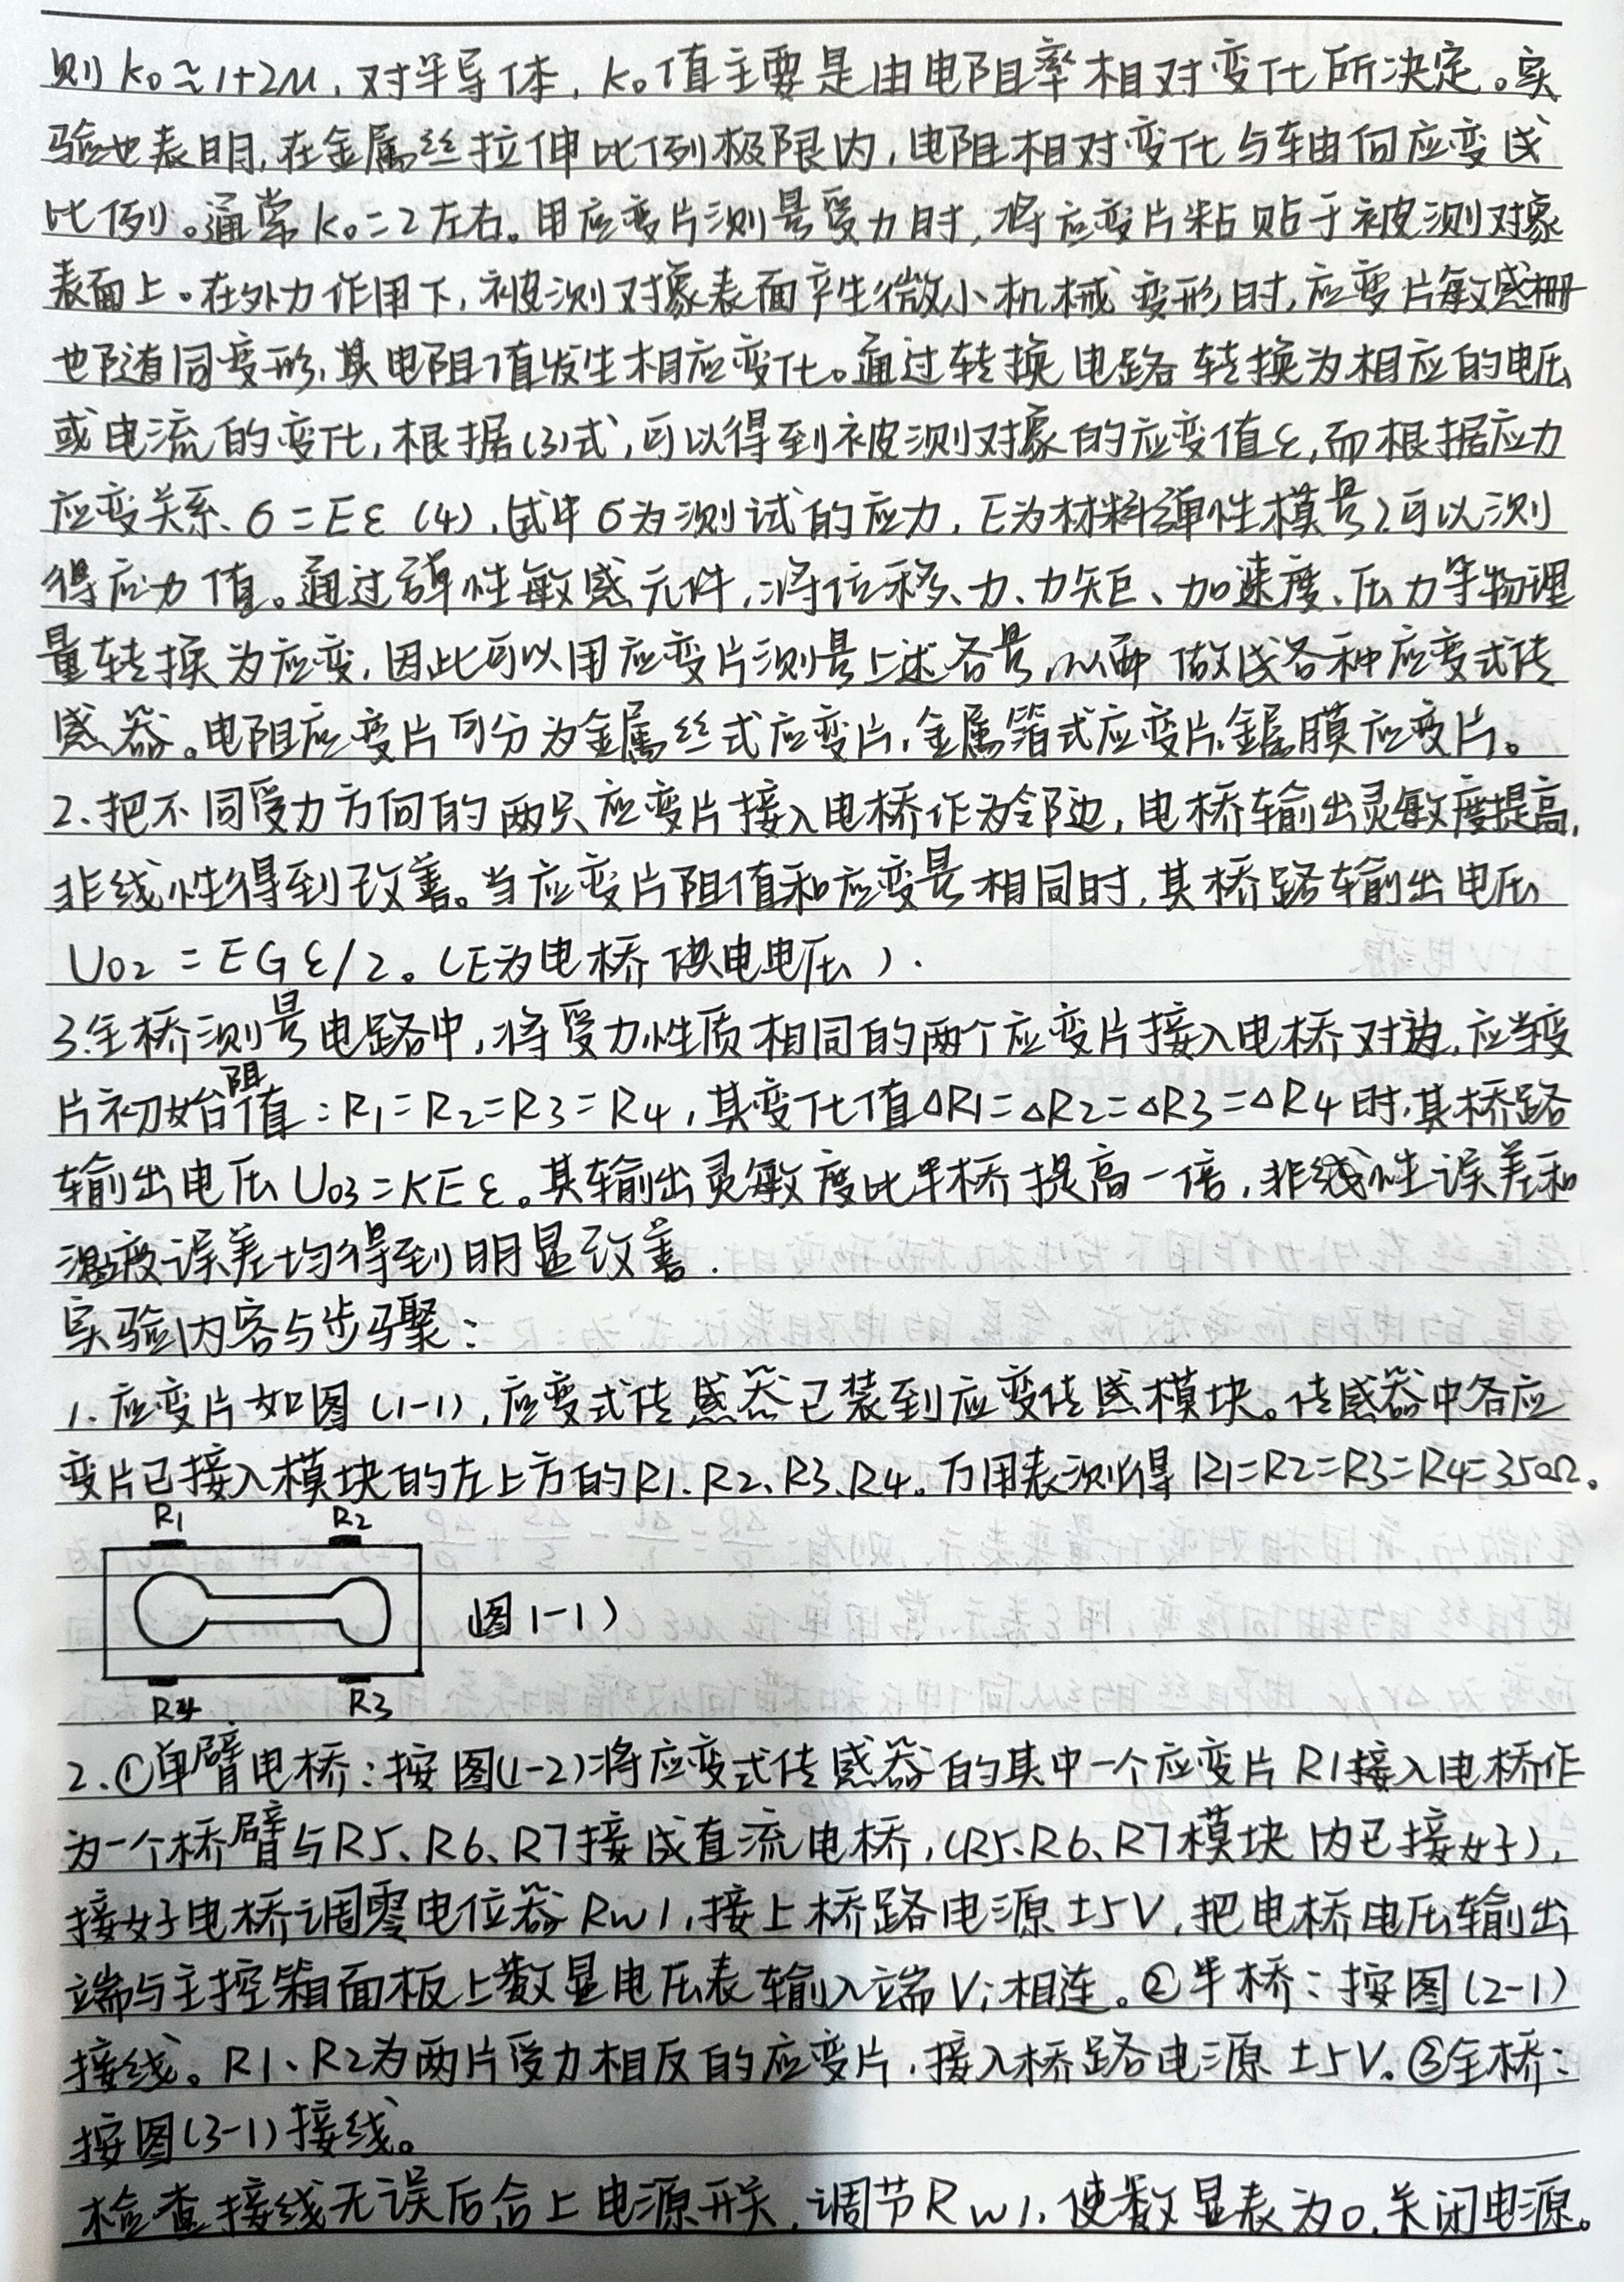 则k₀≈1+2μ,对半导体,k₀值主要是由电阻率相对变化所决定。实
验也表明,在金属丝拉伸比例极限内,电阻相对变化与轴向应变成
比例。通常k₀=2左右。用应变片测量受力时,将应变片粘贴于被测对象
表面上。在外力作用下,被测对象表面产生微小机械变形时,应变片敏感栅
也随同变形,其电阻值发生相应变化。通过转换电路转换为相应的电压
或电流的变化,根据(3)式,可以得到被测对象的应变值ε,而根据应力
应变关系、σ=Eε(4),(式中σ为测试的应力,E为材料弹性模量)可以测
得应力值。通过弹性敏感元件,将位移、力、力矩、加速度、压力等物理
量转换为应变,因此可以用应变片测量上述各量,从而做成各种应变式传
感器。电阻应变片可分为金属丝式应变片,金属箔式应变片,金属膜应变片。
2、把不同受力方向的两只应变片接入电桥作为邻边,电桥输出灵敏度提高,
非线性得到改善。当应变片阻值和应变量相同时,其桥路输出电压
U02=EGε/2。(E为电桥供电电压).
3.全桥测量电路中,将受力性质相同的两个应变片接入电桥对边,应当变
片初始阻值:R1=R2=R3=R4,其变化值△R1=△R2=△R3=△R4时,其桥路
输出电压U03=KEε。其输出灵敏度比半桥提高一倍,非线性误差和
温度误差均得到明显改善.
实验内容与步骤:
1.应变片如图(1-1),应变式传感器已装到应变传感模块。传感器中各应
变片已接入模块的左上方的R1、R2、R3、R4。万用表测得R1=R2=R3=R4=350Ω。
R1 R2
(图1-1)
R4 R3
2.①单臂电桥:按图(1-2)将应变式传感器的其中一个应变片R1接入电桥作
为一个桥臂与R5、R6、R7接成直流电桥,(R5、R6、R7模块内已接好),
接好电桥调零电位器Rw1,接上桥路电源±5V,把电桥电压输出
端与主控箱面板上数显电压表输入端Vi相连。②半桥:按图(2-1)
接线。R1、R2为两片受力相反的应变片,接入桥路电源±5V。③全桥:
按图(3-1)接线。
检查接线无误后合上电源开关,调节Rw1,使数显表为0,关闭电源。